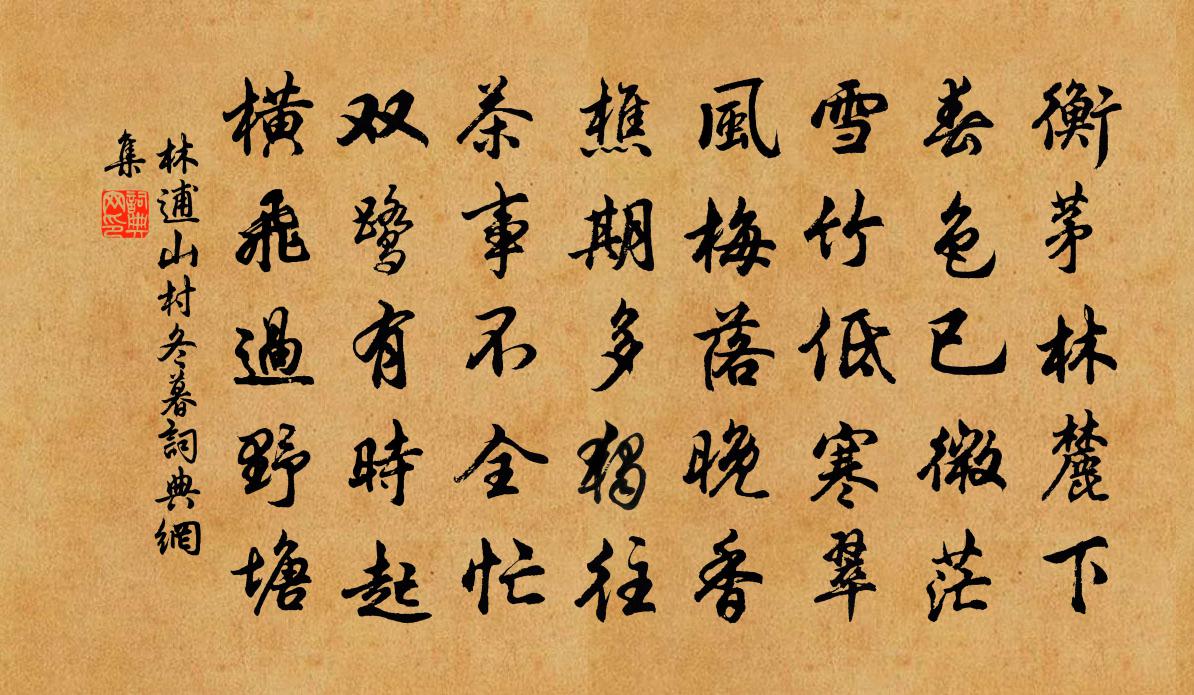 衡茅林麓下
春色已微茫
雪竹低寒翠
風梅落晚香
樵期多獨往
茶事不全忙
双鷺有時起
橫飛過野塘
林逋山村冬暮詞典網
集
詞典
网印